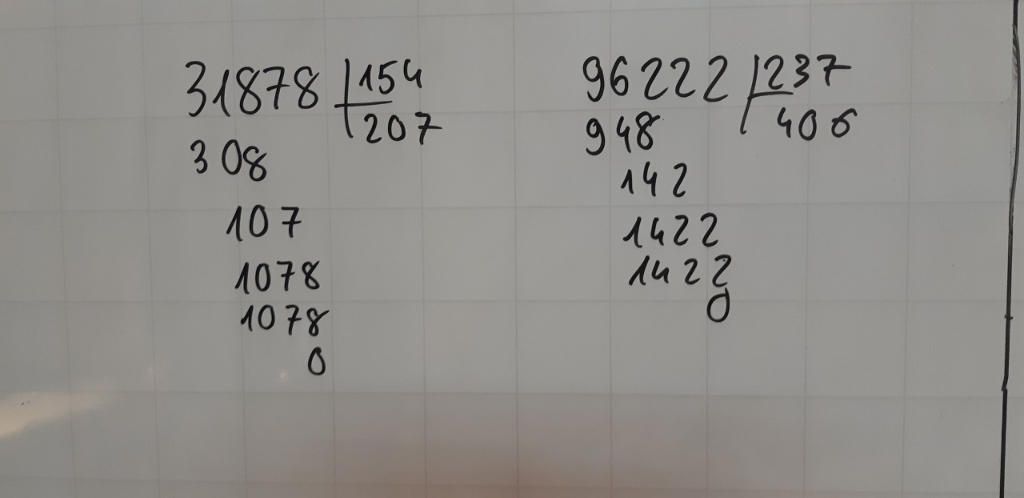 31878 154
207
308
107
1078
1078
0
96222 237
406
948
142
1422
1422
0